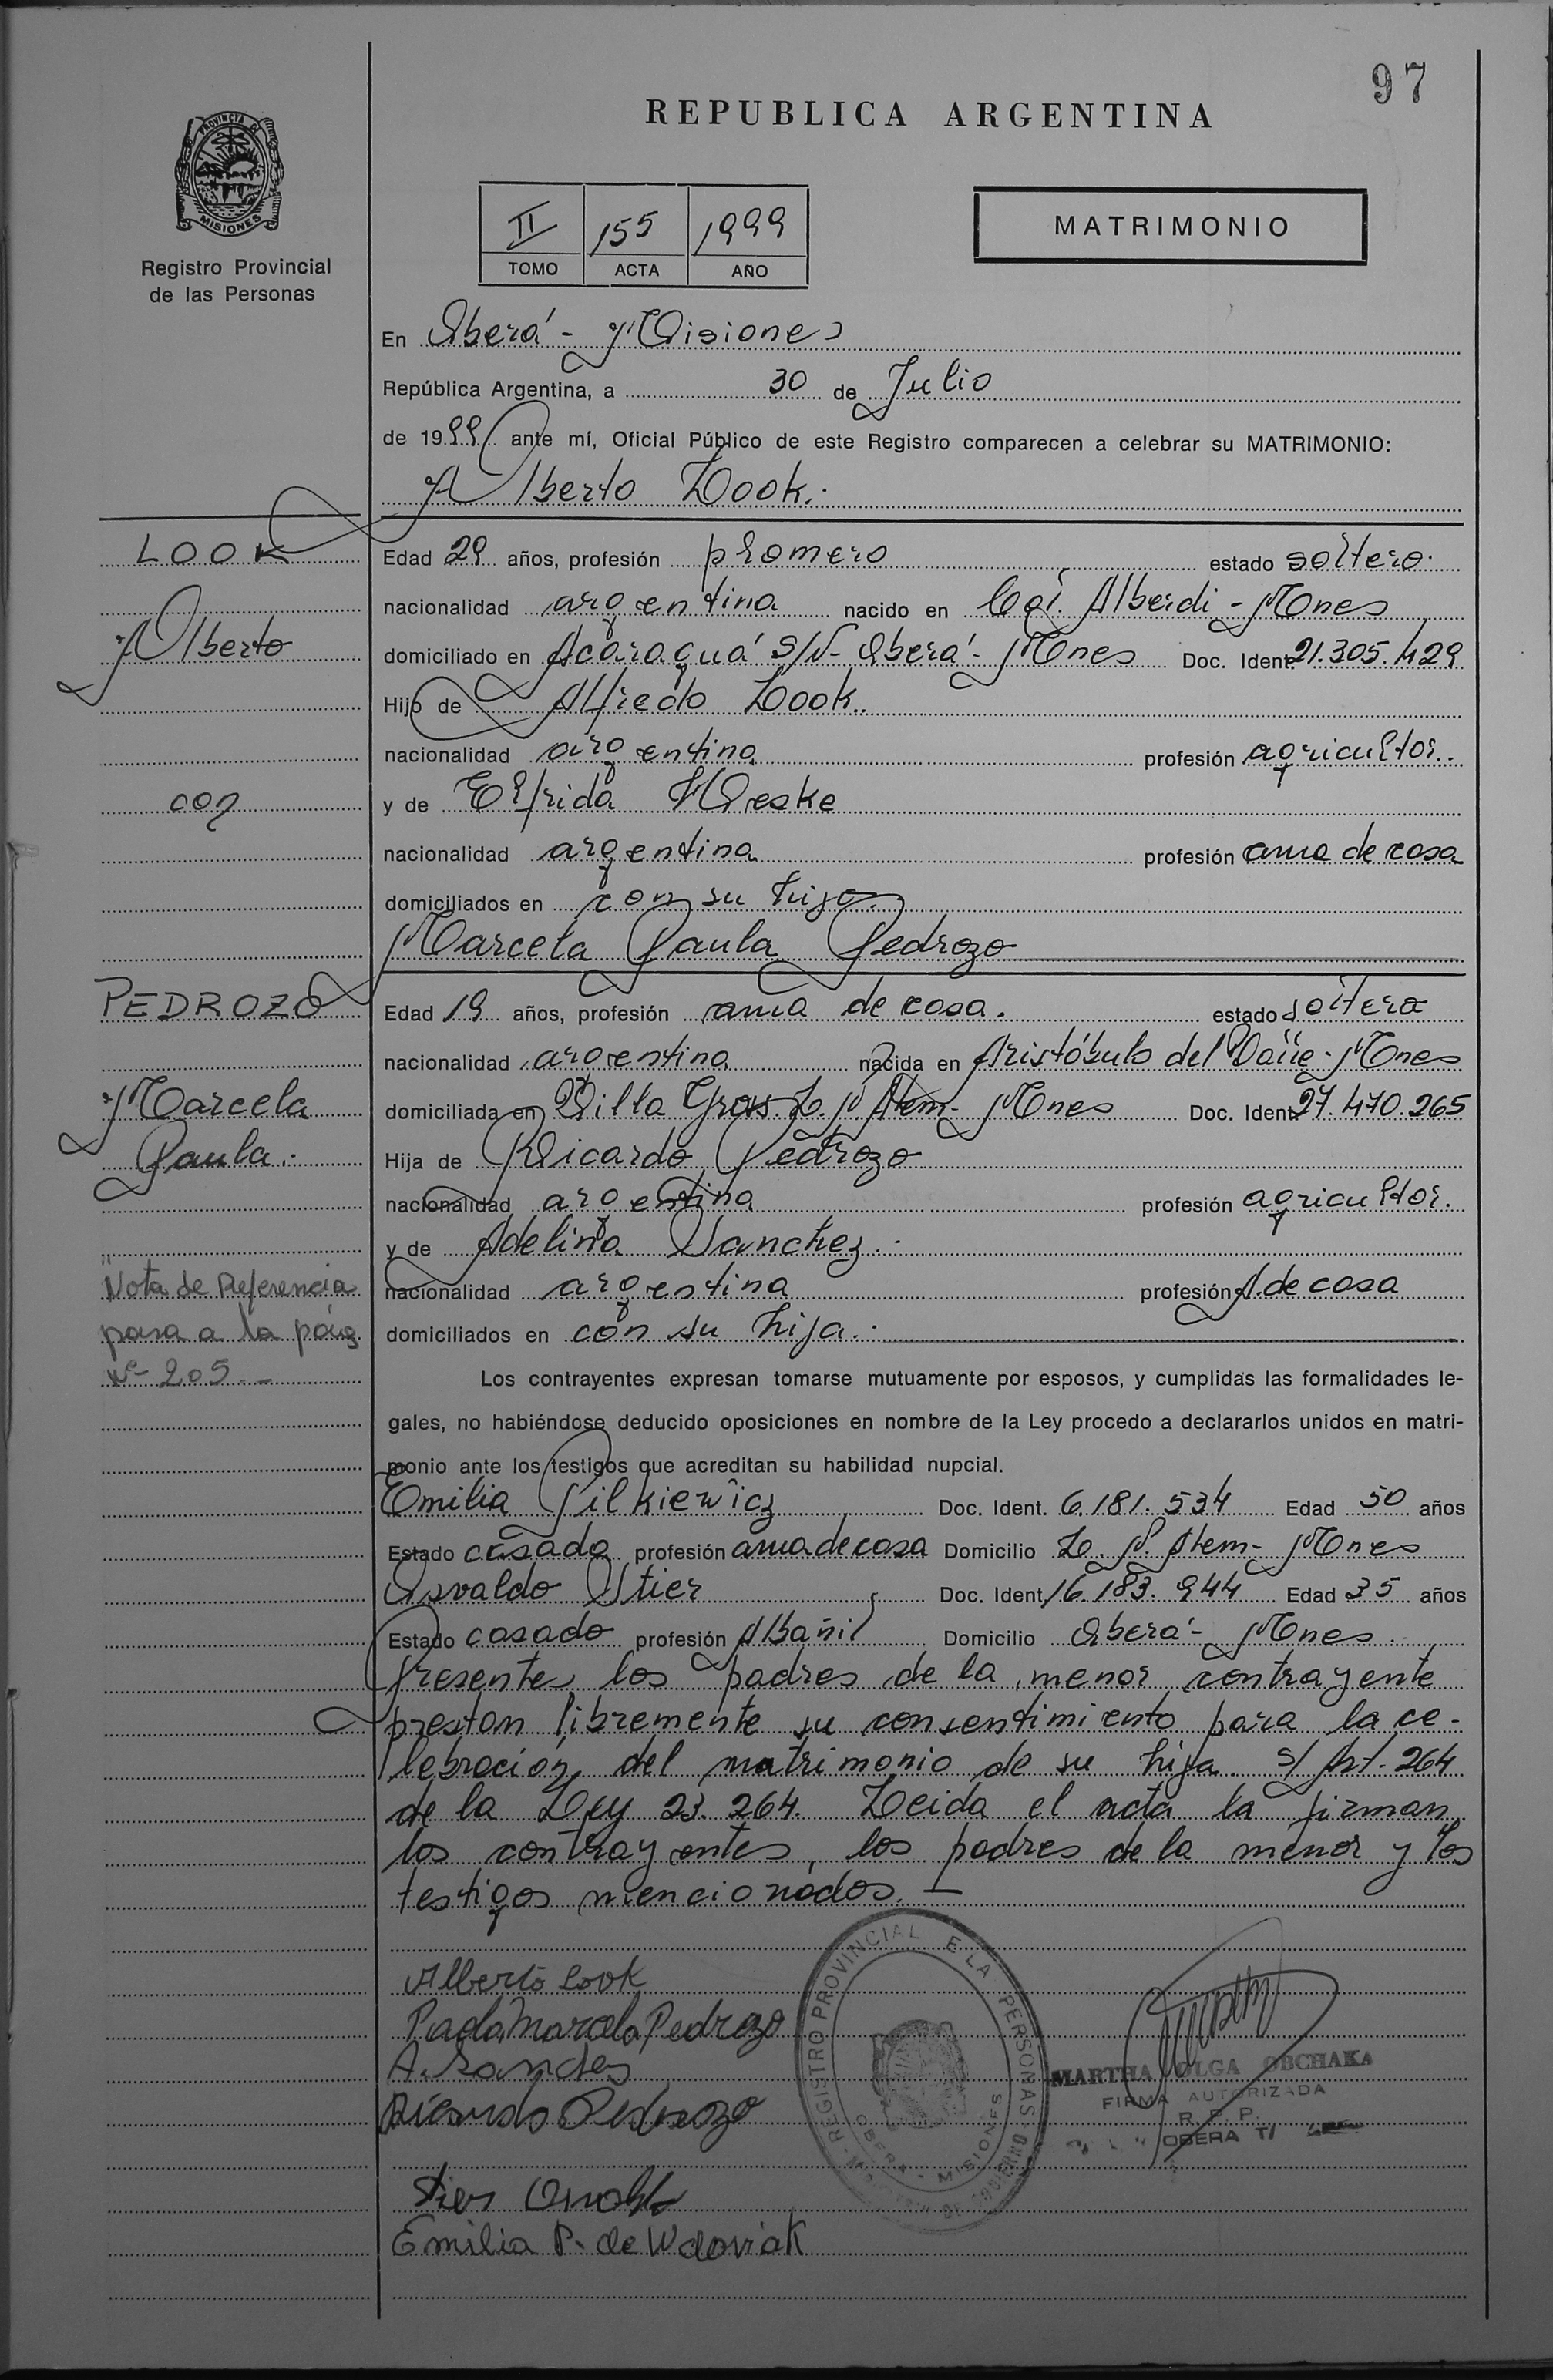 97
REPUBLICA ARGENTINA
PROVINCIA DE
MISIONES
Registro Provincial
de las Personas
II 155 1999
TOMO ACTA AÑO
MATRIMONIO
En Oberá - Misiones
República Argentina, a 30 de Julio
de 1999 ante mí, Oficial Público de este Registro comparecen a celebrar su MATRIMONIO:
Alberto Look.
LOOK
Alberto
con
PEDROZO
Marcela
Paula.
Nota de Referencia
pasa a la pág
Nº 205.-
Edad 29 años, profesión plomero estado soltero.
nacionalidad argentina nacido en Col. Alberdi - Mnes
domiciliado en Acaraguá S/N - Oberá - Mnes Doc. Ident. 21.305.429
Hijo de Alfredo Look.
nacionalidad argentina profesión agricultor.
y de Elfrida Weske
nacionalidad argentina profesión ama de casa
domiciliados en con su hijo.
Marcela Paula Pedrozo
Edad 19 años, profesión ama de casa. estado soltera
nacionalidad argentina nacida en Aristóbulo del Valle - Mnes
domiciliada en Villa Gros. L. N. Alem - Mnes Doc. Ident. 27.470.265
Hija de Ricardo Pedrozo
nacionalidad argentina profesión agricultor.
y de Adelina Sanchez.
nacionalidad argentina profesión A. de casa
domiciliados en con su hija.
Los contrayentes expresan tomarse mutuamente por esposos, y cumplidas las formalidades le-
gales, no habiéndose deducido oposiciones en nombre de la Ley procedo a declararlos unidos en matri-
monio ante los testigos que acreditan su habilidad nupcial.
Emilia Pilkiewicz Doc. Ident. 6.181.534 Edad 50 años
Estado casada profesión ama de casa Domicilio L. N. Alem - Mnes
Osvaldo Stier Doc. Ident. 16.183.944 Edad 35 años
Estado casado profesión Albañil Domicilio Oberá - Mnes.
Presentes los padres de la menor contrayente
prestan libremente su consentimiento para la ce-
lebración del matrimonio de su hija s/ Art. 264
de la Ley 23.264. Leida el acta la firman
los contrayentes, los padres de la menor y los
testigos mencionados. —
Alberto Look
Paola Marcela Pedrozo
A. Sanches
Ricardo Pedrozo
Stier Osvaldo
Emilia P. de Wdoviak
REGISTRO PROVINCIAL E LA PERSONAS
OBERA - MISIONES
MARTHA OLGA OBCHAKA
FIRMA AUTORIZADA
R. P. P.
OBERA